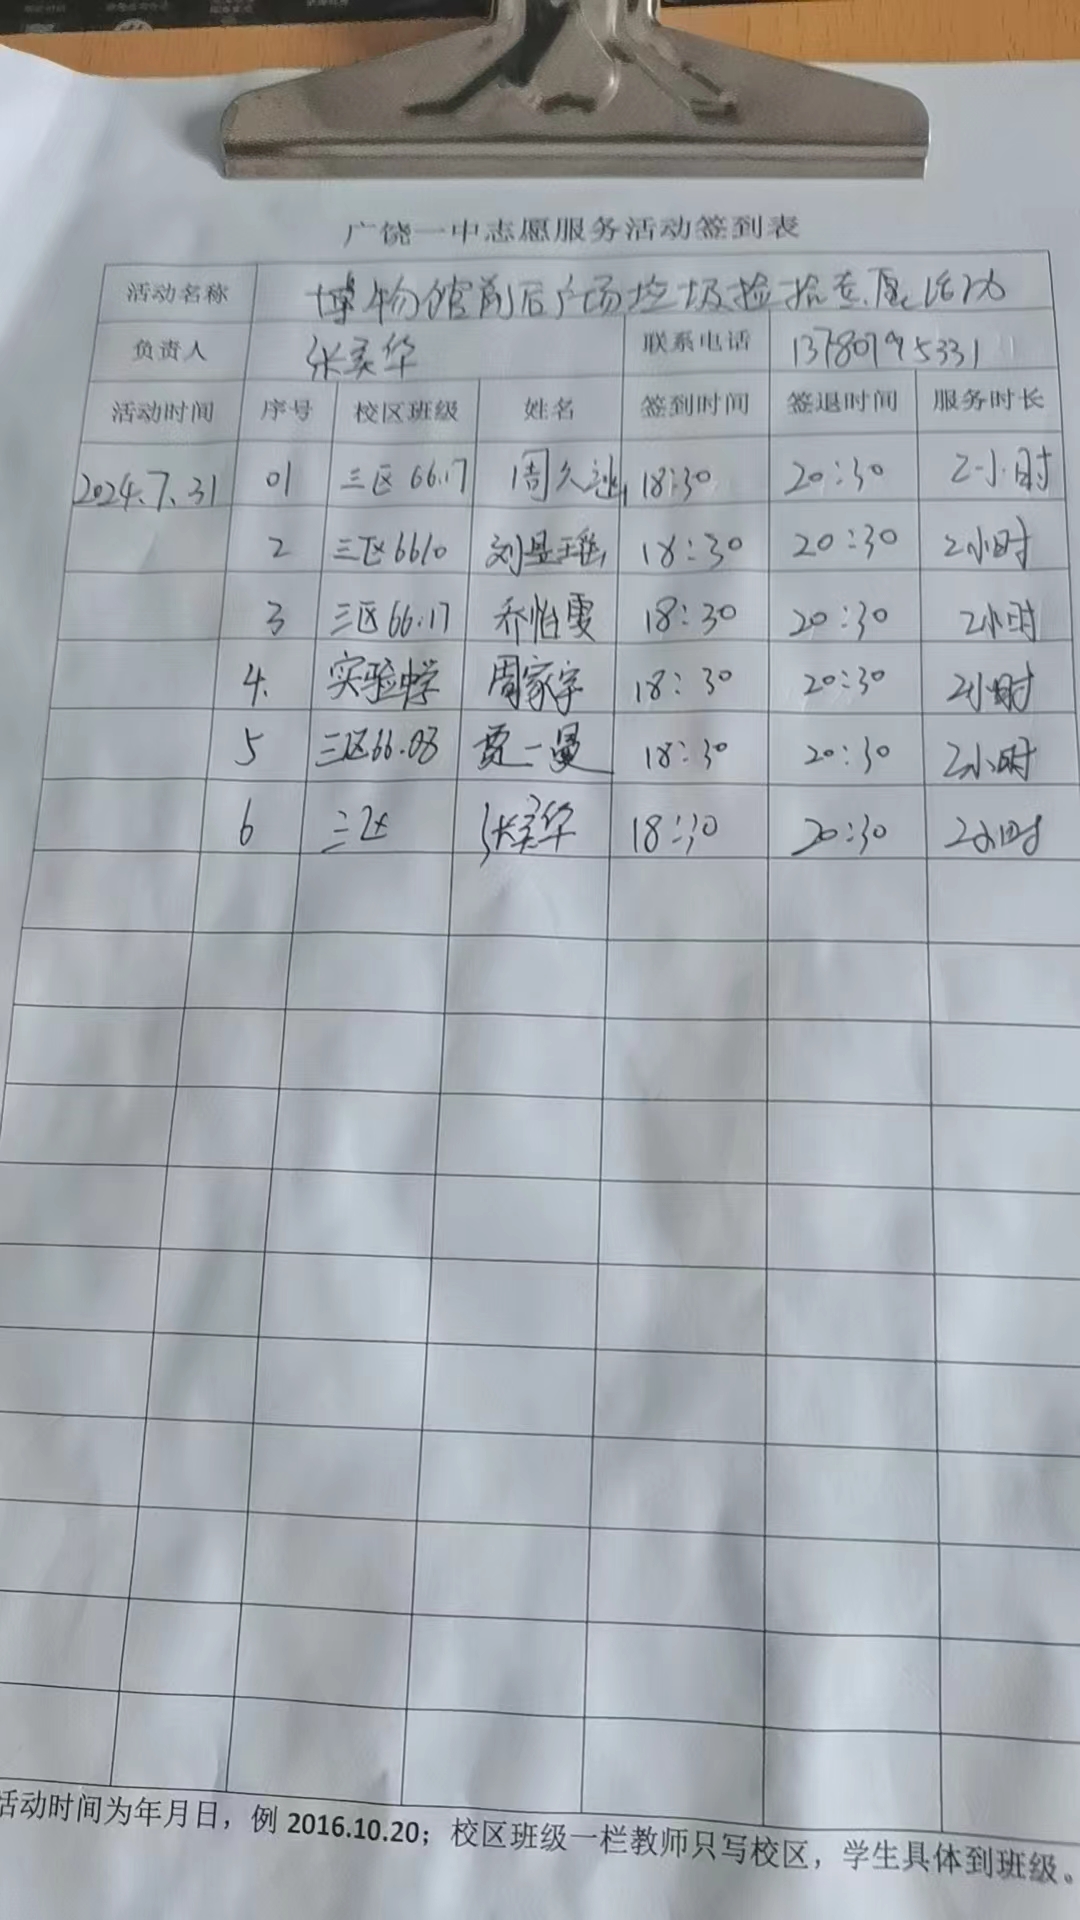 广饶一中志愿服务活动签到表
活动名称 博物馆前后广场垃圾捡拾志愿活动
负责人 张美华 联系电话 13780795331
活动时间 序号 校区班级 姓名 签到时间 签退时间 服务时长
2024.7.31 01 三区 66.17 周久 18:30 20:30 2小时
2 三区6610 刘昱瑶 18:30 20:30 2小时
3 三区66.17 乔怡雯 18:30 20:30 2小时
4. 实验中学 周家宇 18:30 20:30 2小时
5 三区66.08 贾一曼 18:30 20:30 2小时
6 三区 张美华 18:30 20:30 2小时
活动时间为年月日，例 2016.10.20；校区班级一栏教师只写校区，学生具体到班级。